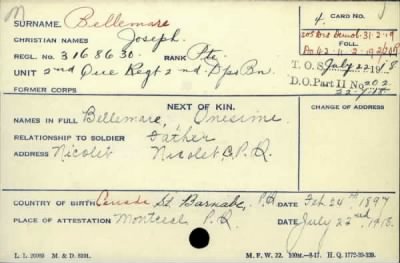 M
SURNAME. Bellemare
CARD NO.
4.
CHRISTIAN NAMES Joseph.
REGL. NO. 3168630. RANK Pte.
FOLL.
UNIT 2nd Que Regt 2nd Dpo Bn.
T. O. S. July 22 1918
D. O. Part II No 202
FORMER CORPS
NEXT OF KIN.
CHANGE OF ADDRESS
NAMES IN FULL Bellemare, Onesime
RELATIONSHIP TO SOLDIER Father
ADDRESS Nicolet Nicolet C. P.Q.
COUNTRY OF BIRTH Canada St. Barnabe, P.Q. DATE Feb. 24th 1897
PLACE OF ATTESTATION Montreal P.Q. DATE July 22nd 1918.
M. F. W. 22.